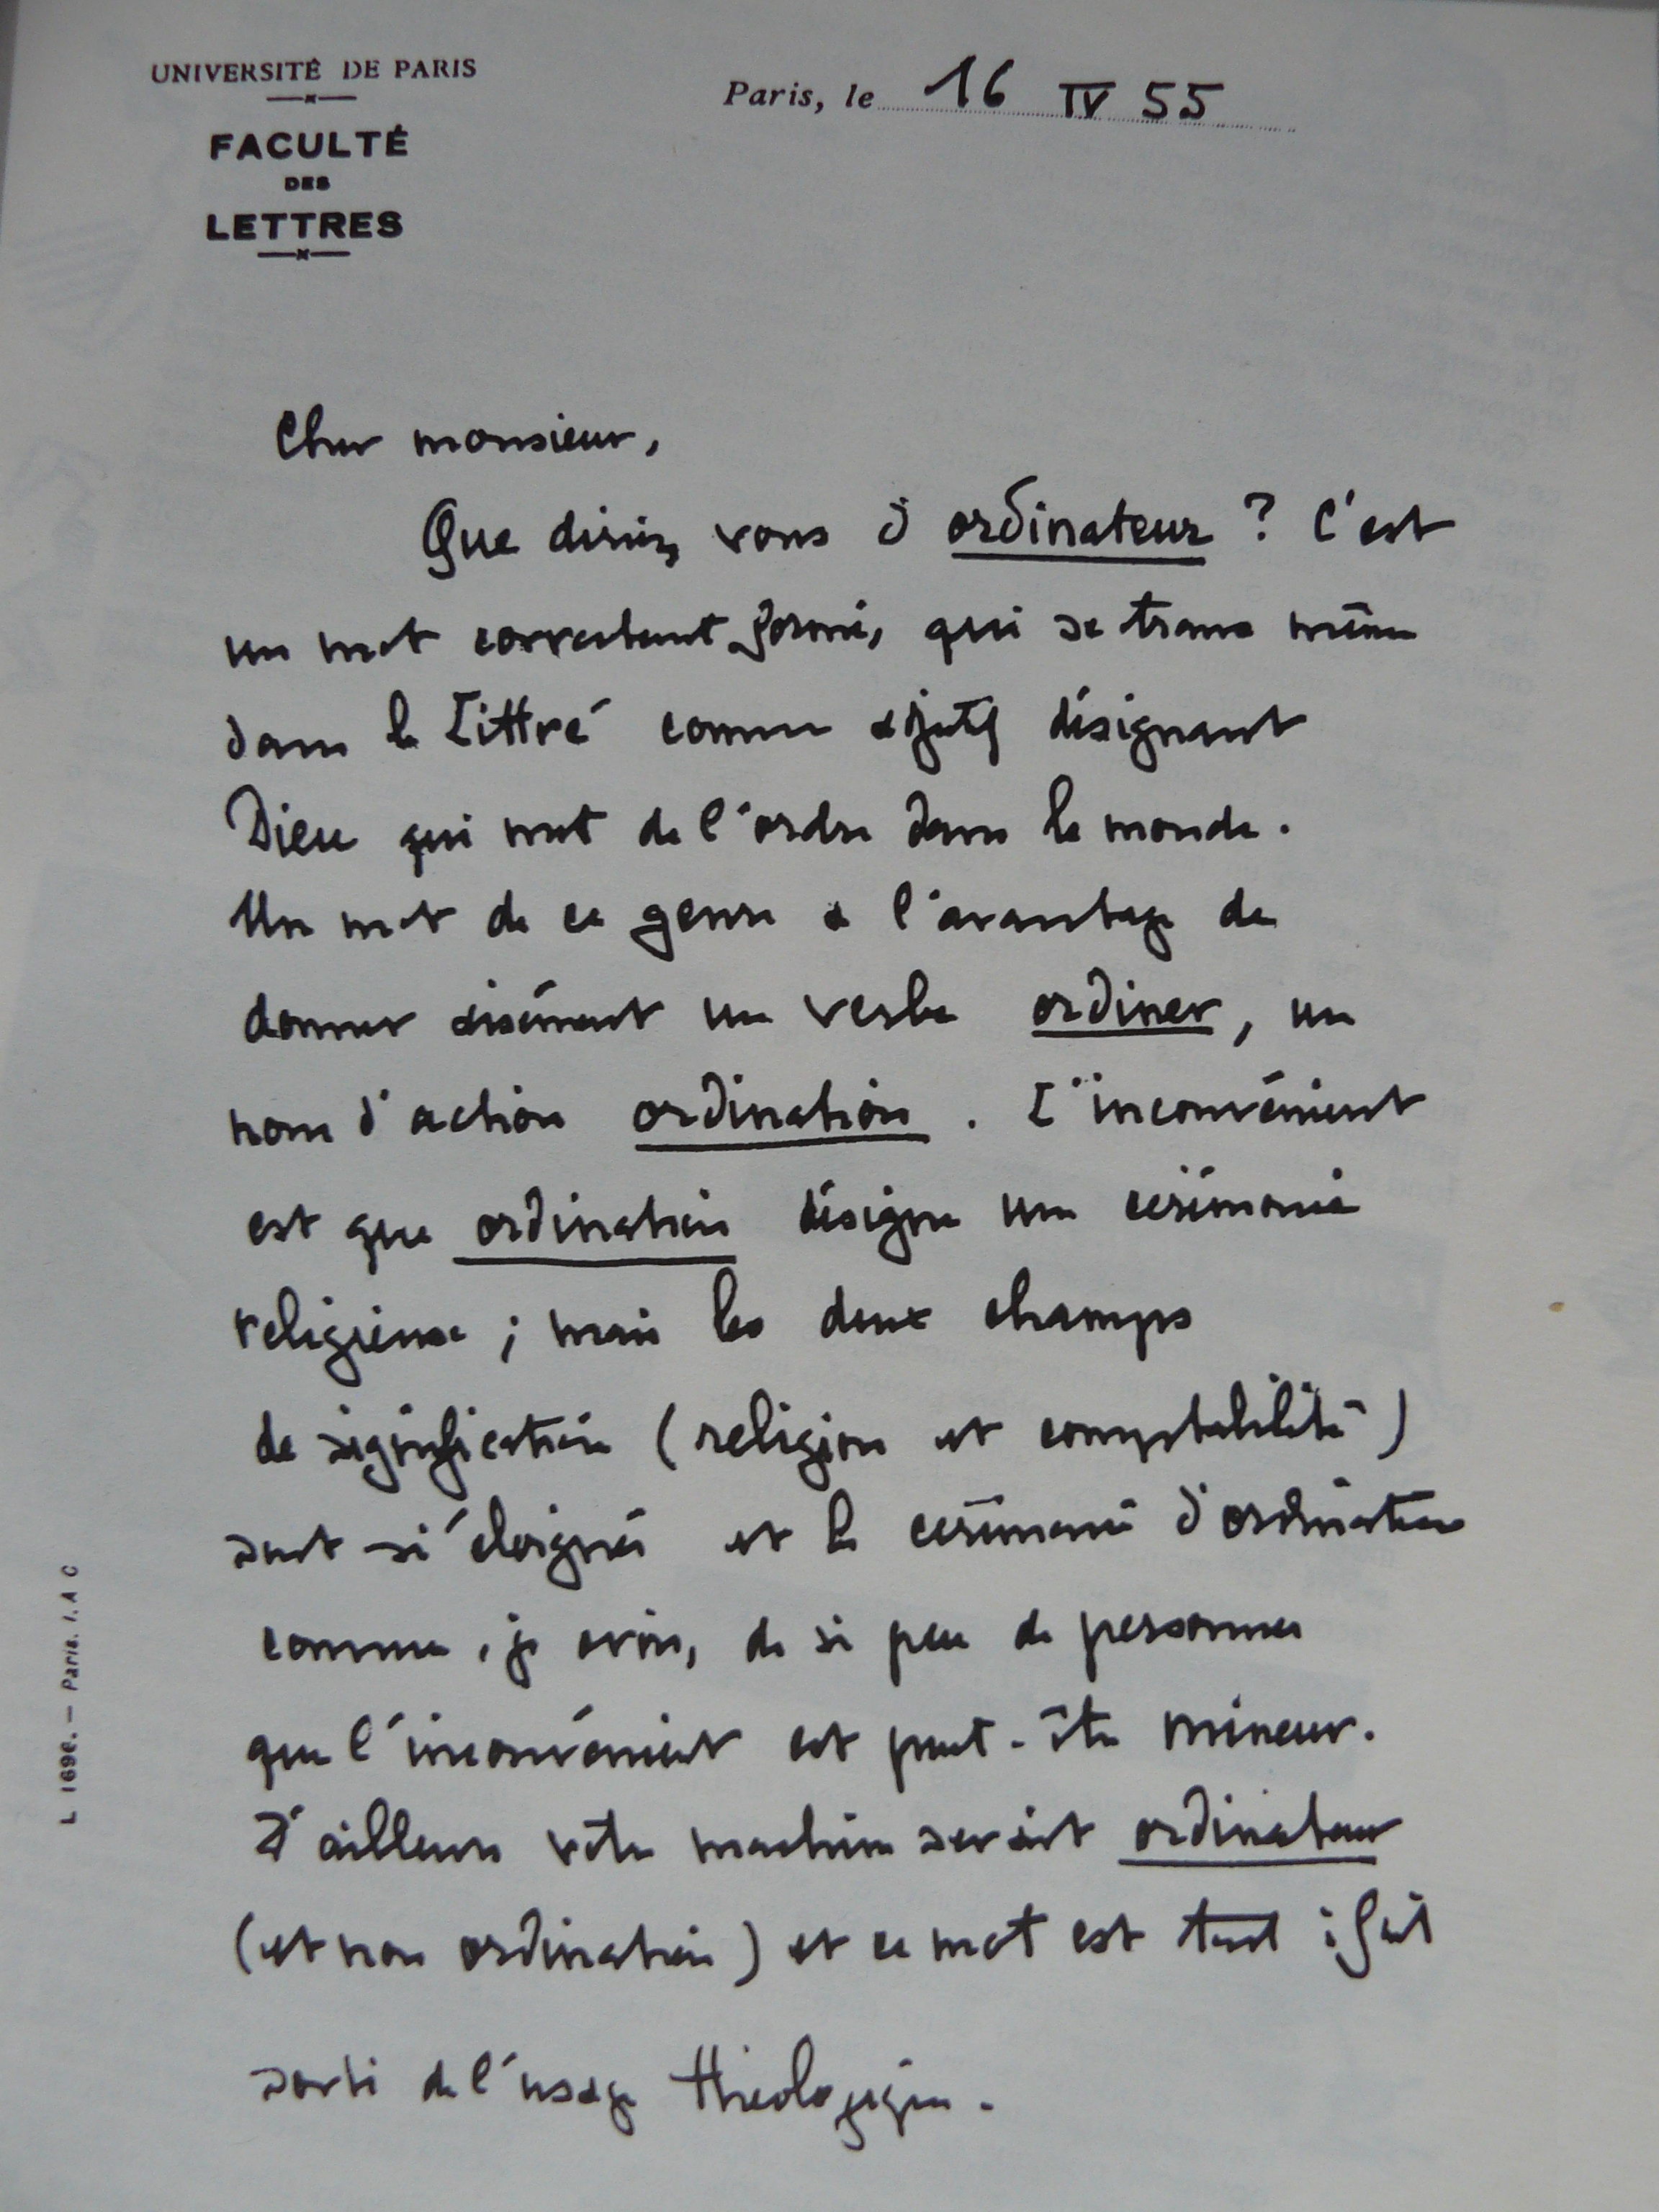 UNIVERSITÉ DE PARIS
FACULTÉ
DES
LETTRES
Paris, le 16 IV 55
Cher monsieur,
Que diriez vous d'ordinateur ? C'est
un mot correctement formé, qui se trouve même
dans le Littré comme adjectif désignant
Dieu qui met de l'ordre dans le monde.
Un mot de ce genre a l'avantage de
donner aisément un verbe ordiner, un
nom d'action ordination. L'inconvénient
est que ordination désigne une cérémonie
religieuse ; mais les deux champs
de signification (religion et comptabilité)
sont si éloignés et la cérémonie d'ordination
connue, je crois, de si peu de personnes
que l'inconvénient est peut-être mineur.
D'ailleurs votre machine serait ordinateur
(et non ordination) et ce mot est tout à fait
sorti de l'usage théologique.
L 1696. — Paris. I. A C